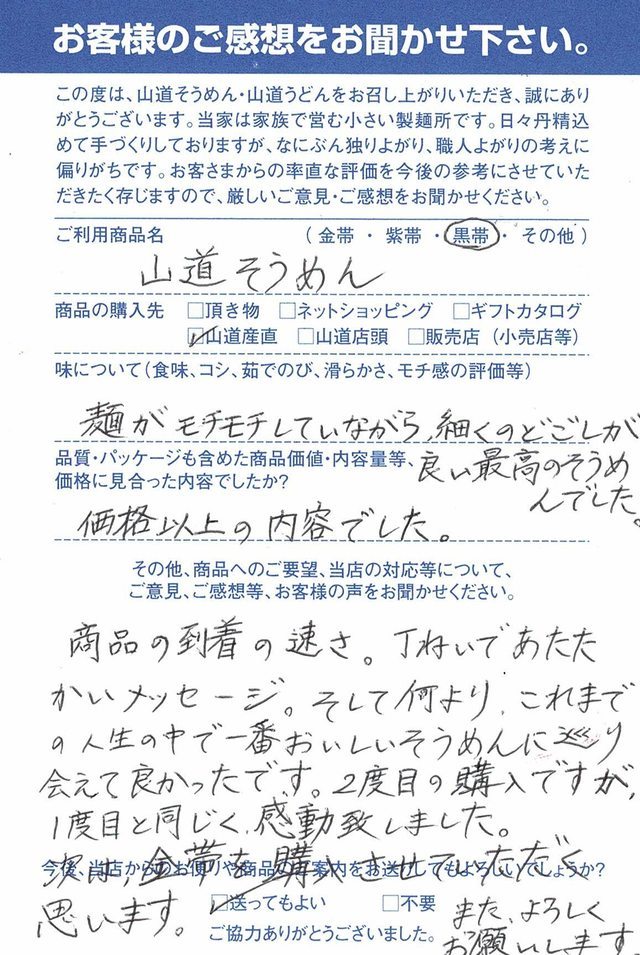 お客様のご感想をお聞かせ下さい。
この度は、山道そうめん・山道うどんをお召し上がりいただき、誠にあり
がとうございます。当家は家族で営む小さい製麺所です。日々丹精込
めて手づくりしておりますが、なにぶん独りよがり、職人よがりの考えに
偏りがちです。お客さまからの率直な評価を今後の参考にさせていた
だきたく存じますので、厳しいご意見・ご感想をお聞かせください。
ご利用商品名 （ 金帯 ・ 紫帯 ・ 黒帯 ・ その他 ）
山道そうめん
商品の購入先 □頂き物 □ネットショッピング □ギフトカタログ
☑山道産直 □山道店頭 □販売店（小売店等）
味について（食味、コシ、茹でのび、滑らかさ、モチ感の評価等）
麺がモチモチしていながら、細くのどごしが
良い最高のそうめ
んでした。
品質・パッケージも含めた商品価値・内容量等、
価格に見合った内容でしたか?
価格以上の内容でした。
その他、商品へのご要望、当店の対応等について、
ご意見、ご感想等、お客様の声をお聞かせください。
商品の到着の速さ。丁ねいであたた
かいメッセージ。そして何より、これまで
の人生の中で一番おいしいそうめんに巡り
会えて良かったです。2度目の購入ですが、
1度目と同じく、感動致しました。
次は、金帯を購入させていただく
思います。
今後、当店からのお便りや商品のご案内をお送りしてもよろしいでしょうか?
☑送ってもよい □不要
また、よろしく
お願いします。
ご協力ありがとうございました。